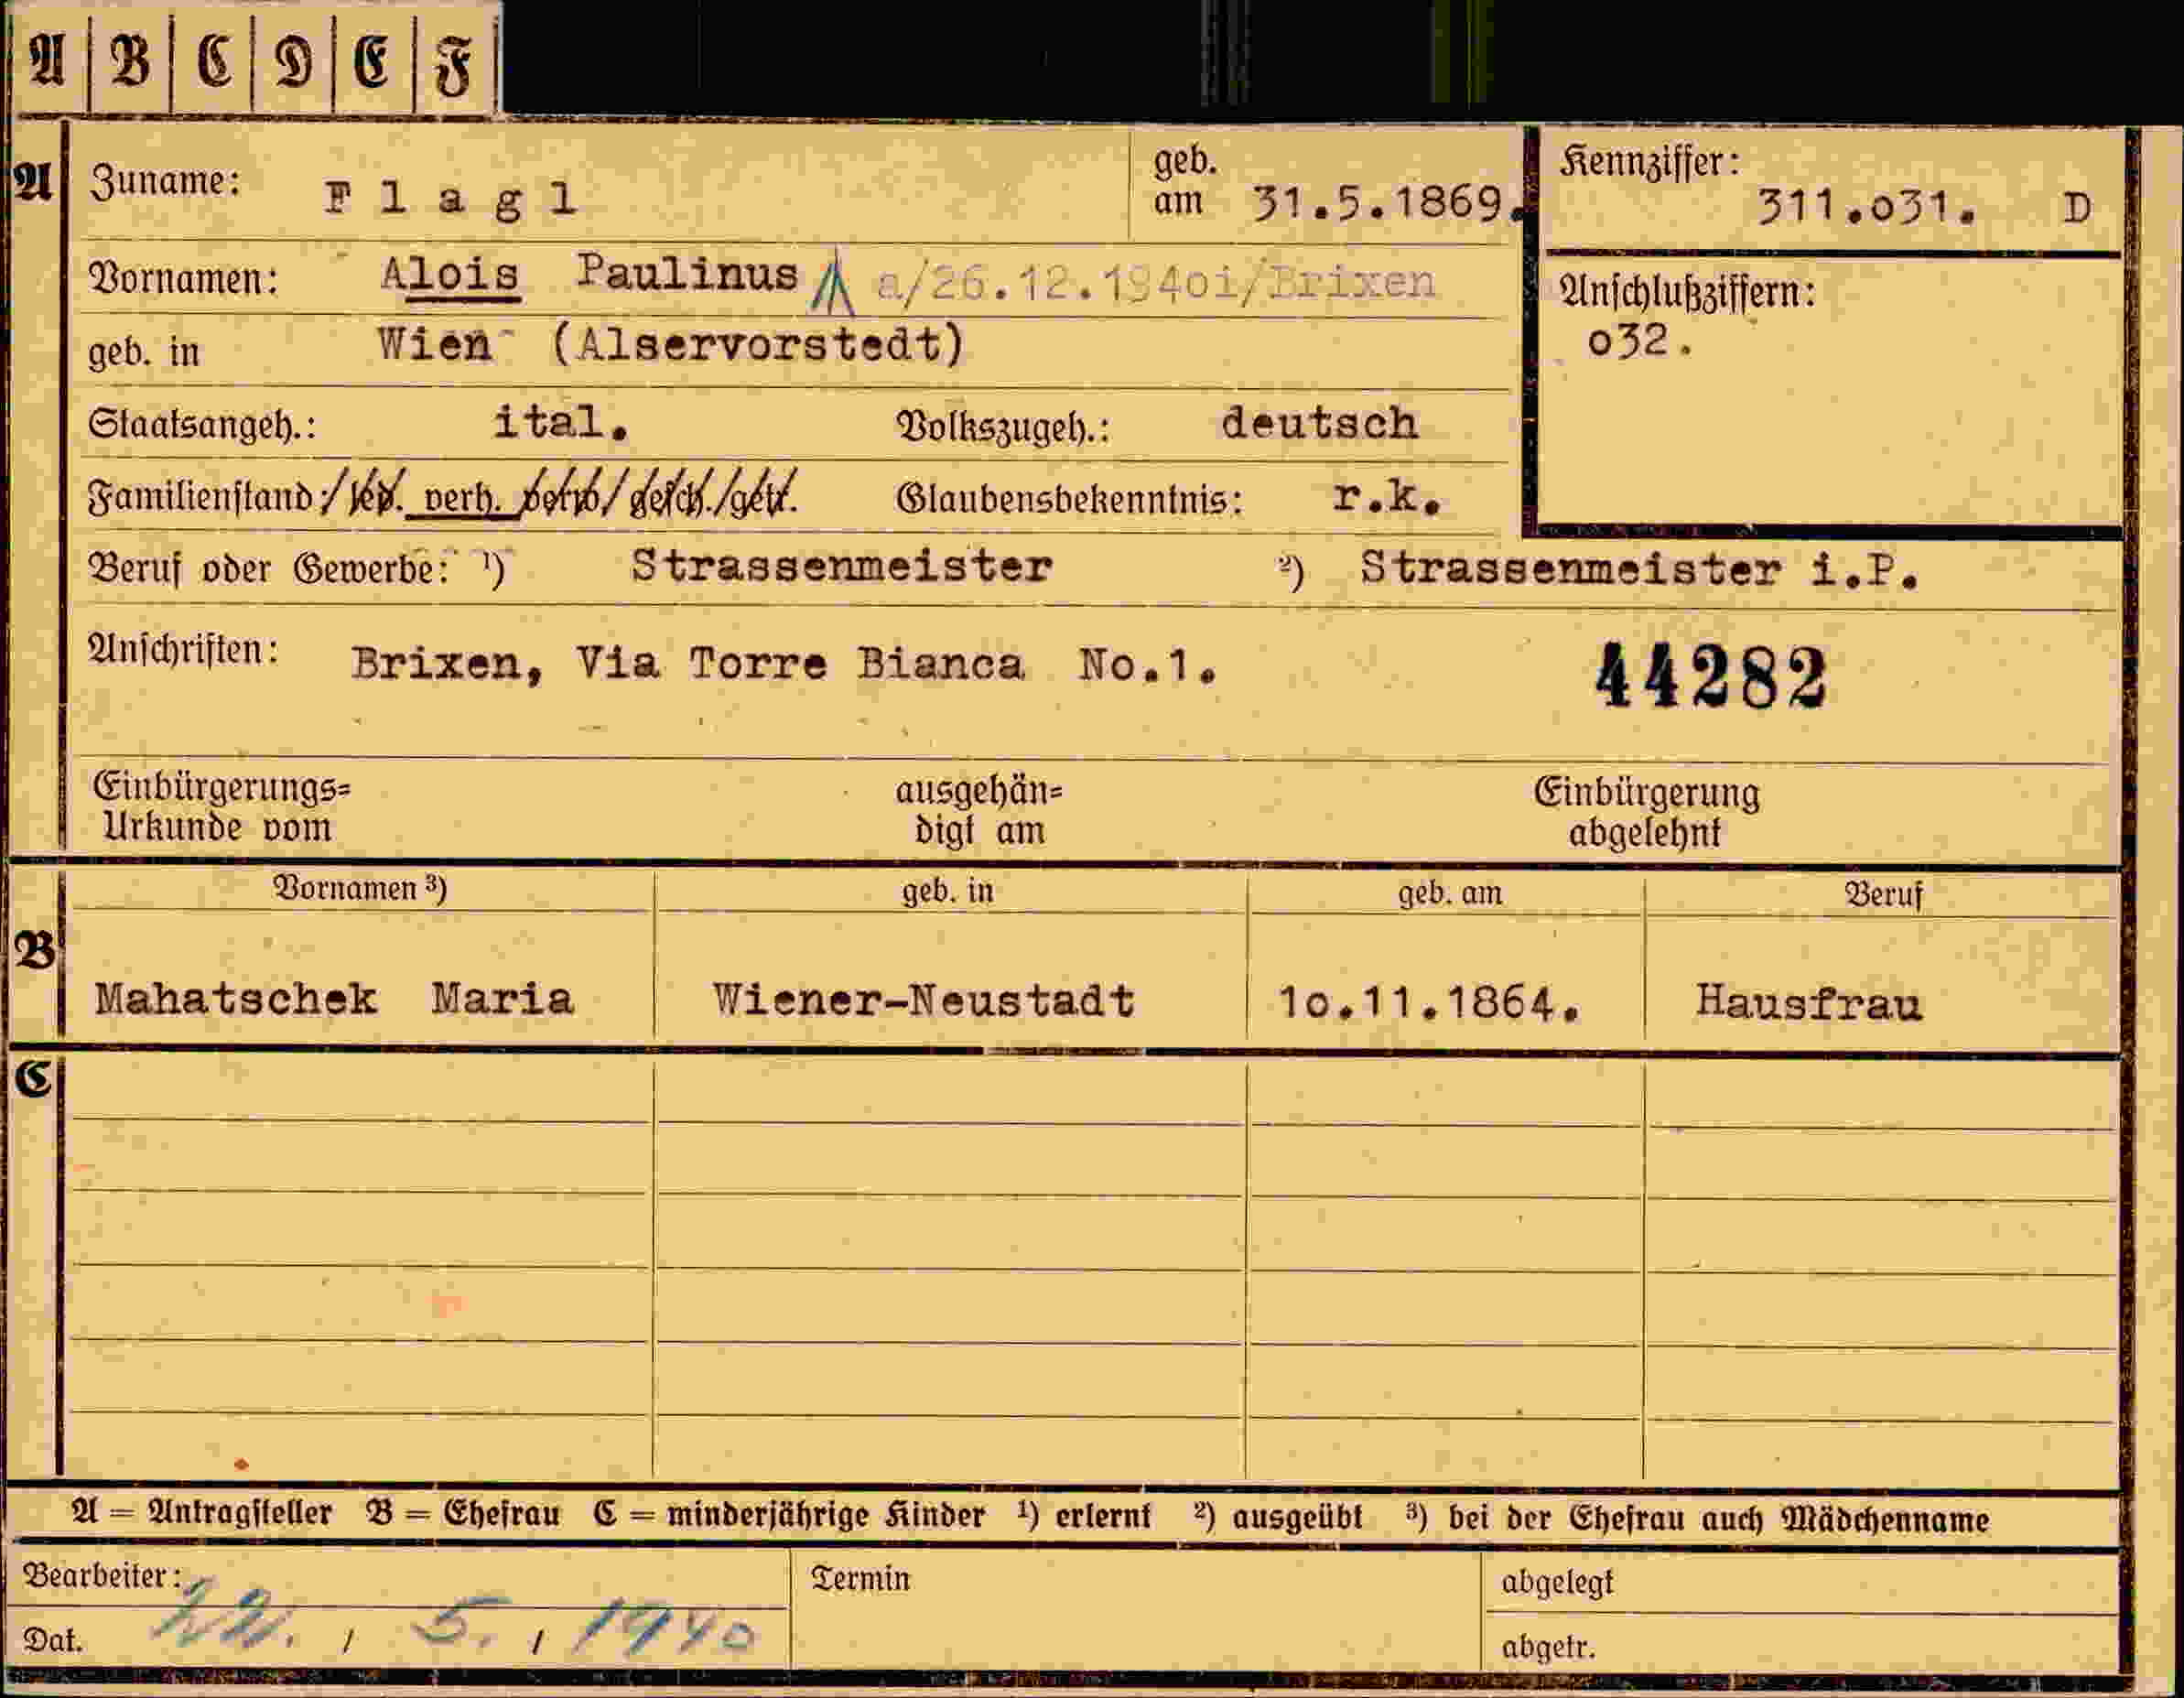 A B C D E F
A Zuname: F l a g l geb. am 31.5.1869. Kennziffer: 311.o31. D
Vornamen: Alois Paulinus a/26.12.194oi/Brixen Anschlußziffern:
geb. in Wien (Alservorstedt) o32.
Staatsangeh.: ital. Volkszugeh.: deutsch
Familienstand: led. verh. verw. gesch. getr. Glaubensbekenntnis: r.k.
Beruf oder Gewerbe: ¹) Strassenmeister ²) Strassenmeister i.P.
Anschriften: Brixen, Via Torre Bianca No.1. 44282
Einbürgerungs= ausgehän= Einbürgerung
Urkunde vom digt am abgelehnt
Vornamen ³) geb. in geb. am Beruf
B
Mahatschek Maria Wiener-Neustadt 1o.11.1864. Hausfrau
C
A = Antragsteller B = Ehefrau C = minderjährige Kinder ¹) erlernt ²) ausgeübt ³) bei der Ehefrau auch Mädchenname
Bearbeiter: Termin abgelegt
Dat. 22. / 5. / 1940 abgetr.